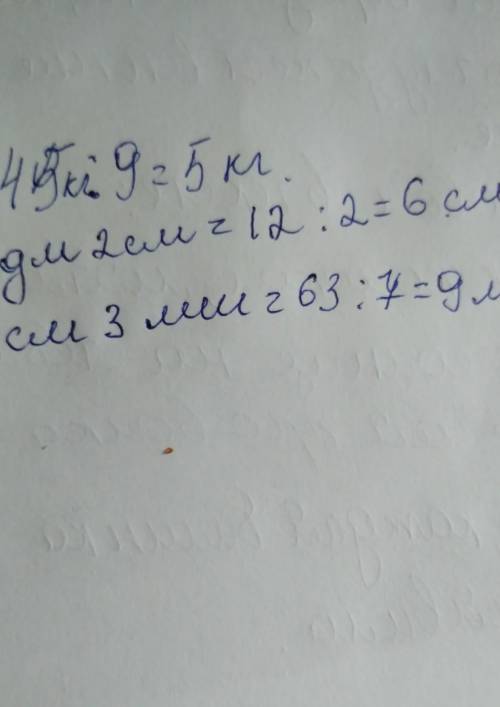 45кг:9=5 кг.
дм 2см=12:2=6 см
см 3 мм=63:7=9м